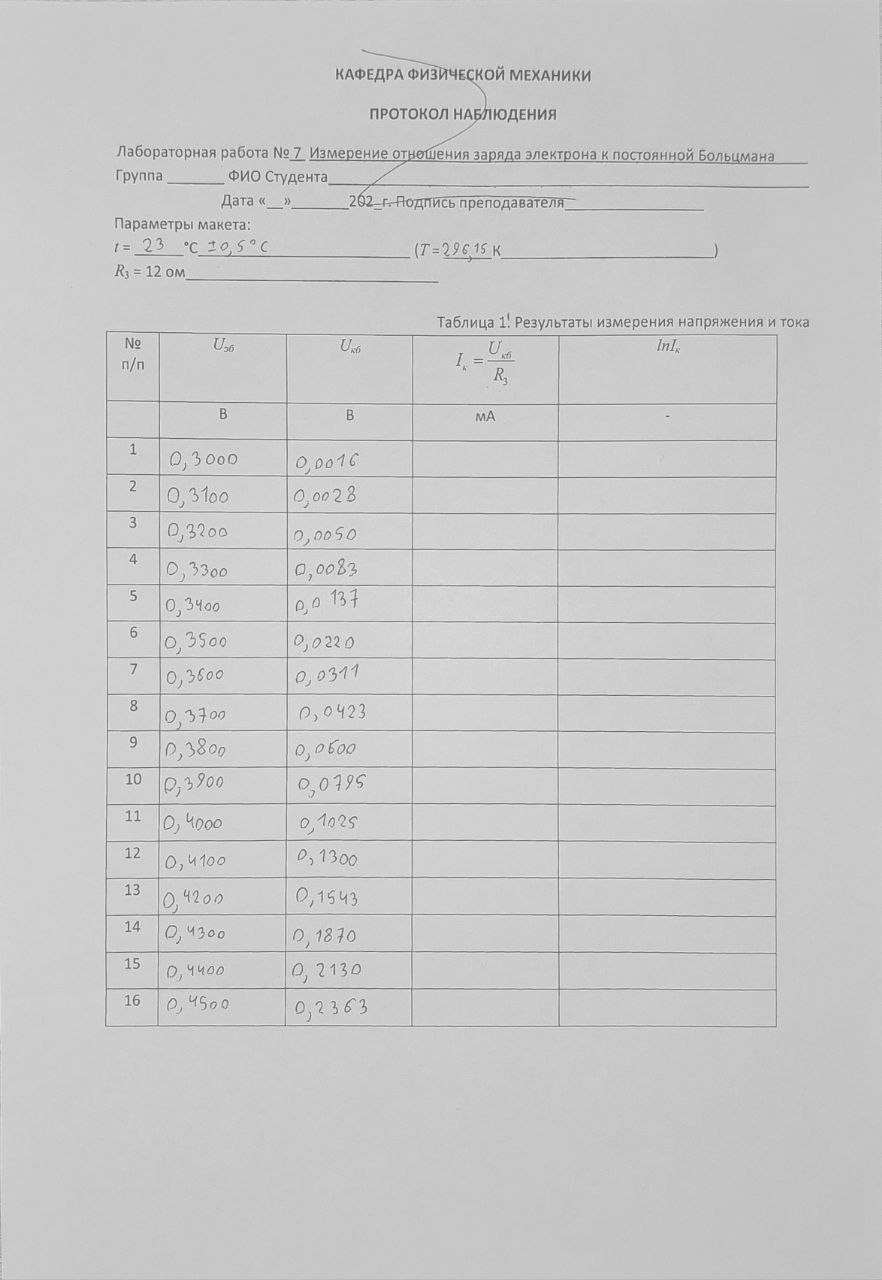 КАФЕДРА ФИЗИЧЕСКОЙ МЕХАНИКИ
ПРОТОКОЛ НАБЛЮДЕНИЯ
Лабораторная работа № 7 Измерение отношения заряда электрона к постоянной Больцмана
Группа ______ ФИО Студента
Дата «__»______202_г. Подпись преподавателя
Параметры макета:
t = 23 °C ±0,5°C (T=296,15 К )
R3 = 12 ом
Таблица 1. Результаты измерения напряжения и тока
№ п/п Uэб Uкб Iк = Uкб / R3 lnIк
В В мА -
1 0,3000 0,0016
2 0,3100 0,0028
3 0,3200 0,0050
4 0,3300 0,0083
5 0,3400 0,0137
6 0,3500 0,0220
7 0,3600 0,0311
8 0,3700 0,0423
9 0,3800 0,0600
10 0,3900 0,0795
11 0,4000 0,1025
12 0,4100 0,1300
13 0,4200 0,1543
14 0,4300 0,1870
15 0,4400 0,2130
16 0,4500 0,2363